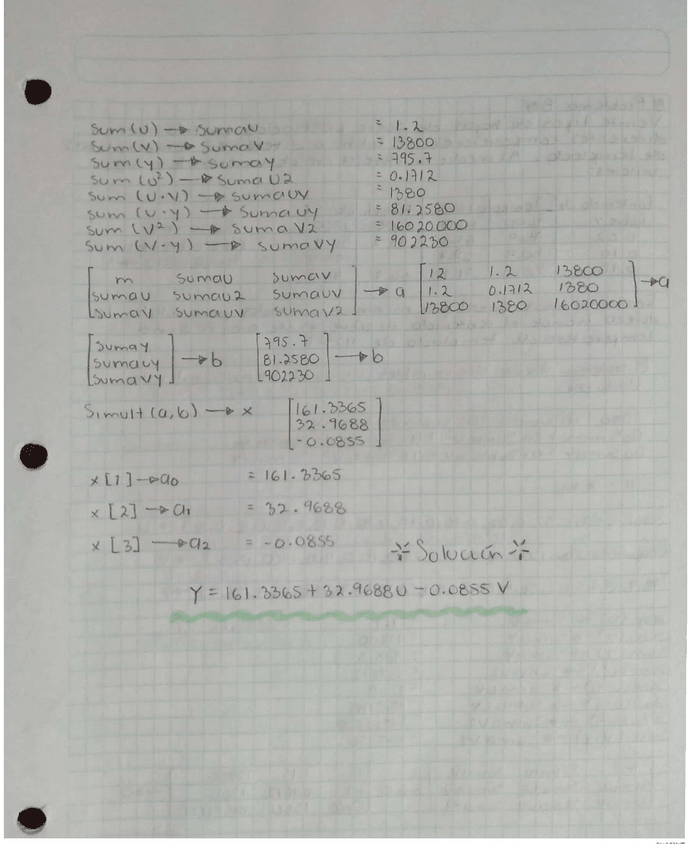 Sum (U) → sumaU = 1.2
Sum (V) → SumaV = 13800
Sum (y) → Sumay = 795.7
Sum (U²) → Suma U2 = 0.1712
Sum (U·V) → SumaUV = 1380
Sum (U·y) → SumaUy = 81.2580
Sum (V²) → Suma V2 = 16020000
Sum (V·y) → sumaVy = 902230
[ m sumaU sumaV ] [ 12 1.2 13800 ]
[ sumaU sumaU2 sumaUV ] → a [ 1.2 0.1712 1380 ] → a
[ sumaV sumaUV sumaV2 ] [ 13800 1380 16020000 ]
[ sumay ] [ 795.7 ]
[ sumaUy ] → b [ 81.2580 ] → b
[ sumaVy ] [ 902230 ]
Simult (a,b) → x [ 161.3365 ]
[ 32.9688 ]
[ -0.0855 ]
x [1] → a0 = 161.3365
x [2] → a1 = 32.9688
x [3] → a2 = -0.0855
Solución
Y = 161.3365 + 32.9688U - 0.0855 V